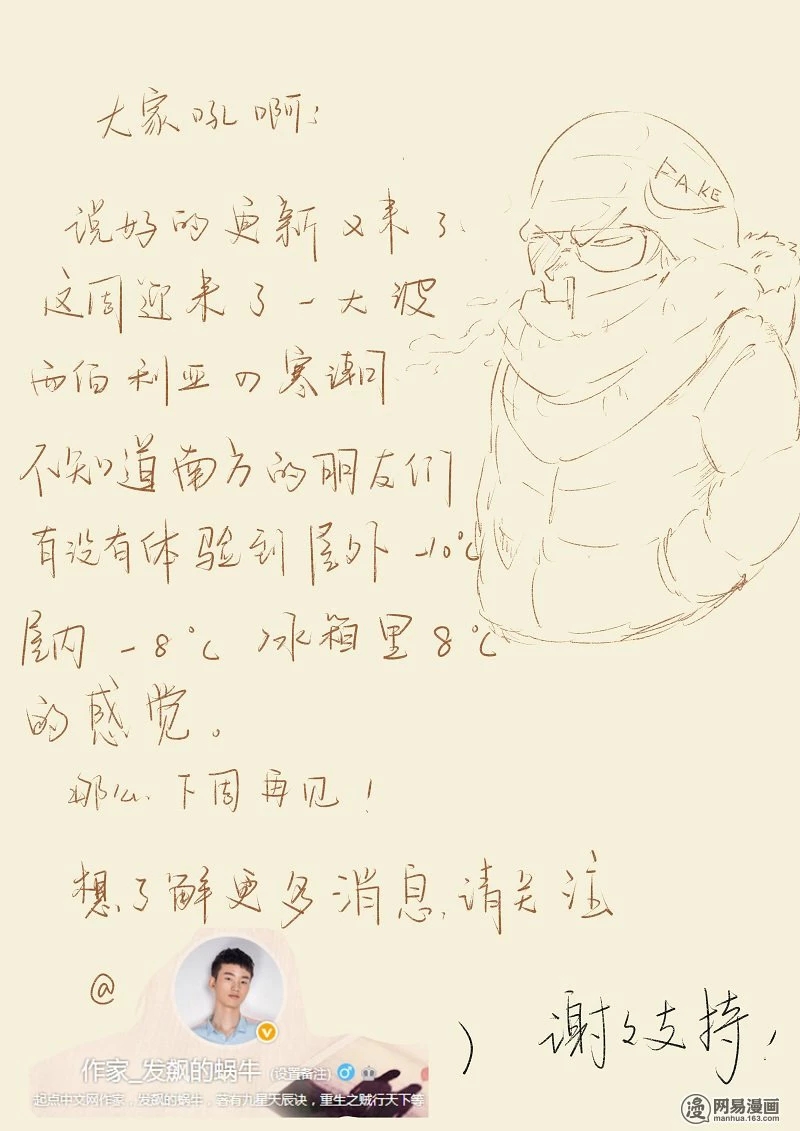 大家吼啊:
FAKE
说好的更新又来了.
这周迎来了一大波
西伯利亚の寒潮
不知道南方的朋友们
有没有体验到屋外-10℃
屋内-8℃ 冰箱里8℃
的感觉。
那么.下周再见!
想了解更多消息,请关注
@
作家_发飙的蜗牛 (设置备注)
起点中文网作家,发飙的蜗牛,著有九星天辰诀,重生之贼行天下等
)
谢々支持!
漫 网易漫画
manhua.163.com